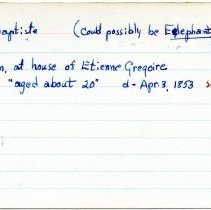 aptiste (could possibly be Elephant
n, at house of Etienne Gregoire
"aged about 20" d - Apr. 3, 1853